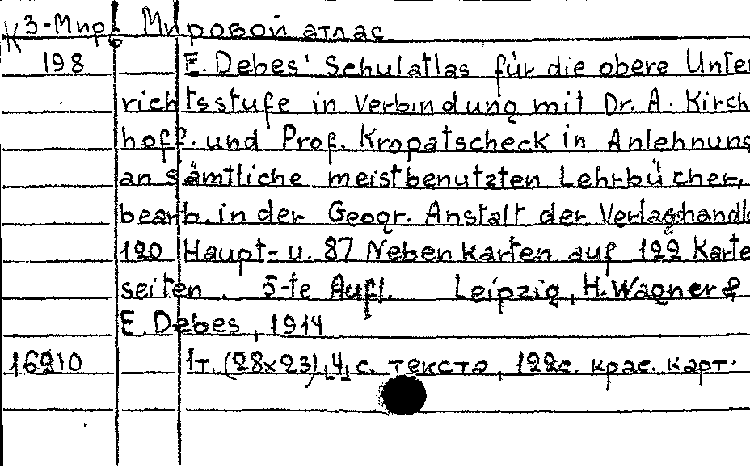 К3-Мир. Мировой атлас
198 E. Debes' Schulatlas für die obere Unter
richtsstufe in Verbindung mit Dr. A. Kirch
hoff. und Prof. Kropatscheck in Anlehnung
an sämtliche meistbenutzten Lehrbücher,
bearb. in der Geogr. Anstalt der Verlaghandl
120 Haupt- u. 87 Nebenkarten auf 122 Karte
seiten. 5-te Aufl. Leipzig, H. Wagner &
E. Debes, 1914
16210 1т. (28x23), 4 с. текста, 122с. крас. карт.